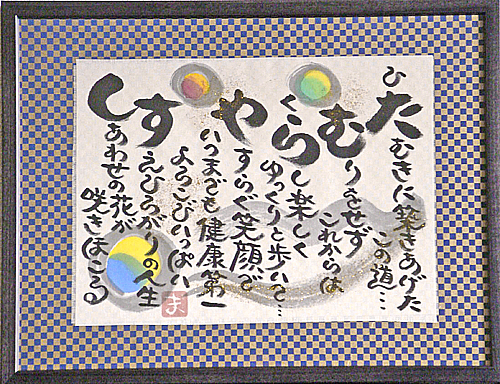 ひたむきに築きあげた
この道…
むりをせず
これからは
ゆっくりと歩いて…
くらし楽しく
やすらぐ笑顔で
いつまでも健康第一
よろこびいっぱい
すえひろがりの人生
しあわせの花が
咲きほこる
ま